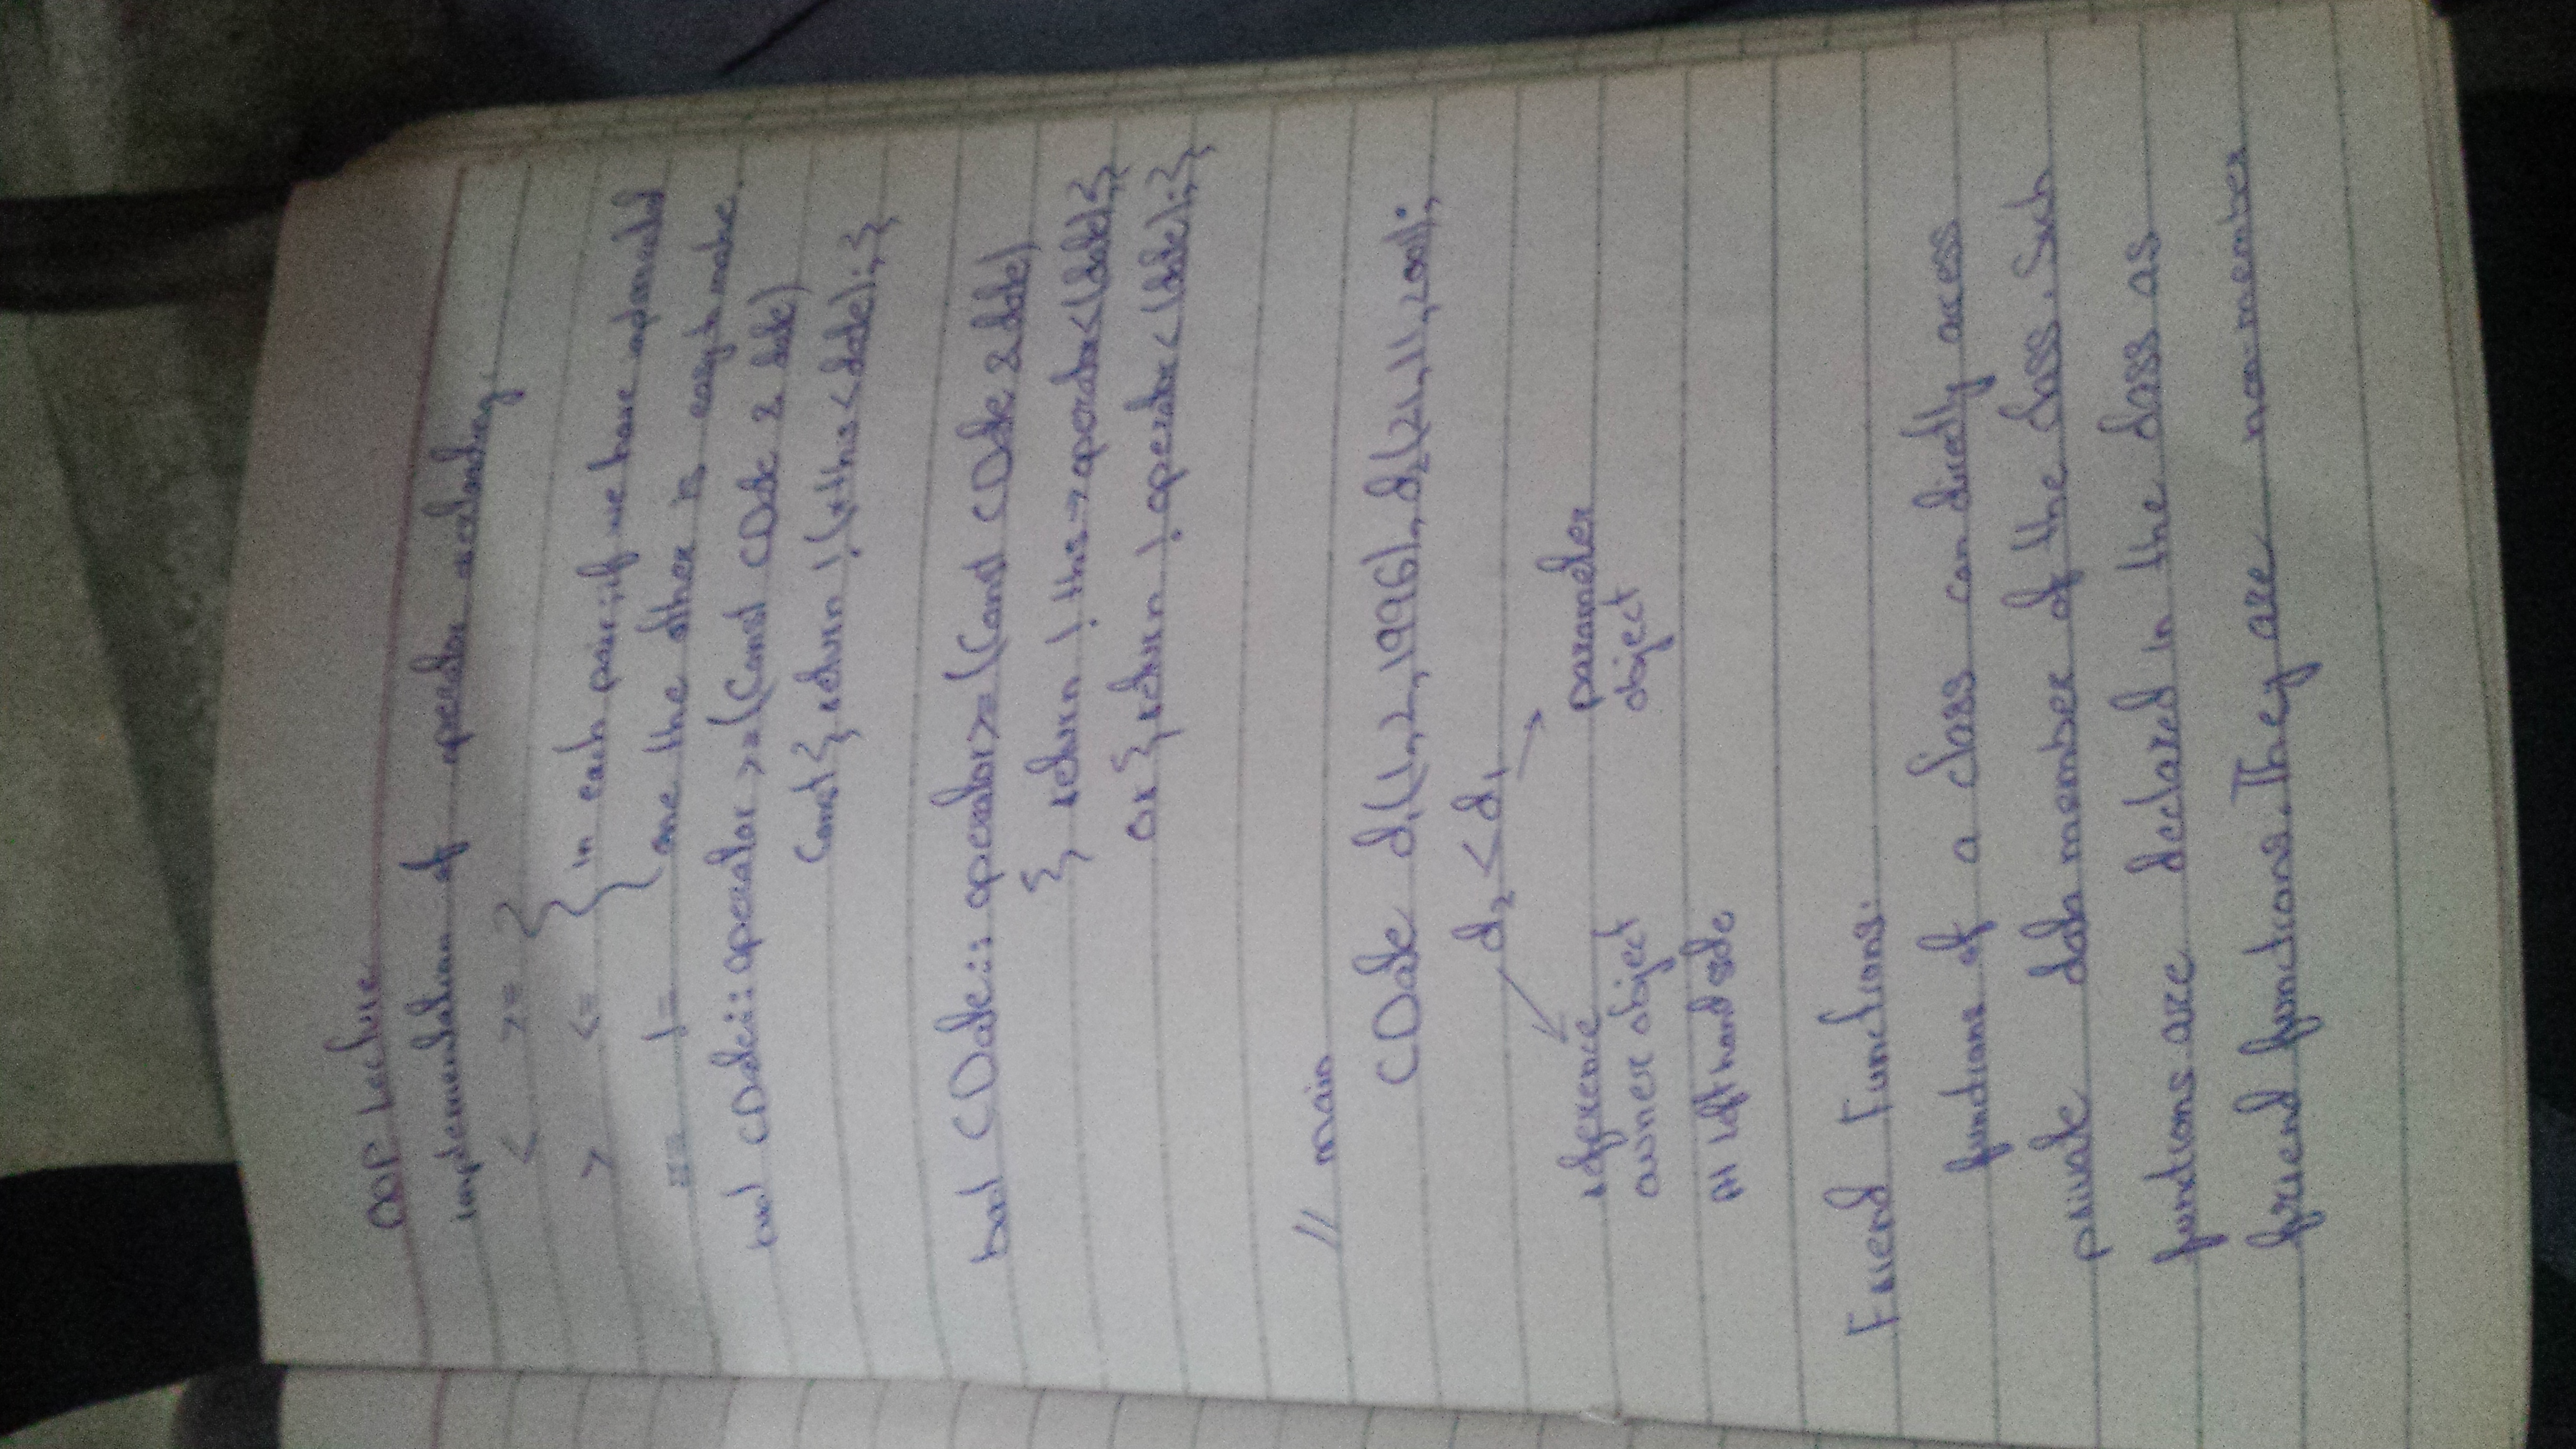 OOP Lecture
implementation of operator overloading.
< >=
> <= } in each pair; if we have implemented
== != one the other is easy to make.
bool CDate:: operator >= (Const CDate & date)
Const { return ! (*this < date); }
bool CDate:: operator >= (Const CDate & date)
{ return ! this → operator < (date) }
or { return ! operator < (date); }
// main
CDate d1(1,2,1996), d2(21,11,2001);
d2 < d1
reference parameter
owner object object
At left hand side
Friend Functions:
functions of a class can directly access
private data member of the class. Such
functions are declared in the class as
friend functions. They are non-member